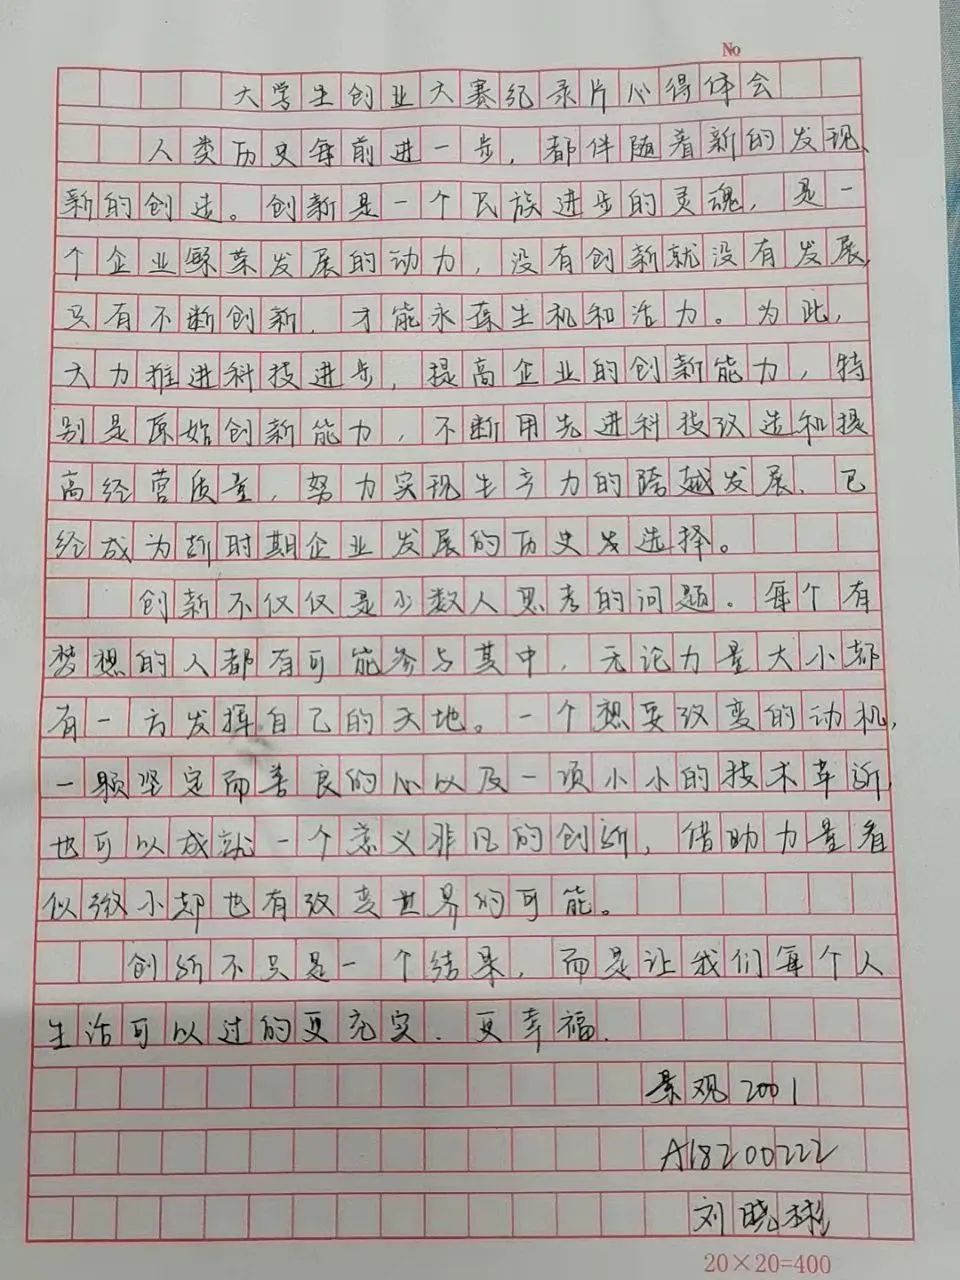 No
大学生创业大赛纪录片心得体会
人类历史每前进一步，都伴随着新的发现、
新的创造。创新是一个民族进步的灵魂，是一
个企业繁荣发展的动力，没有创新就没有发展，
只有不断创新，才能永葆生机和活力。为此，
大力推进科技进步，提高企业的创新能力，特
别是原始创新能力，不断用先进科技改造和提
高经营质量，努力实现生产力的跨越发展、已
经成为新时期企业发展的历史发选择。
创新不仅仅是少数人思考的问题。每个有
梦想的人都有可能参与其中，无论力量大小都
有一方发挥自己的天地。一个想要改变的动机，
一颗坚定而善良的心以及一项小小的技术革新，
也可以成就一个意义非凡的创新，借助力量看
似微小却也有改变世界的可能。
创新不只是一个结果，而是让我们每个人
生活可以过的更充实.更幸福.
景观2001
A18200222
刘晓彬
20×20=400